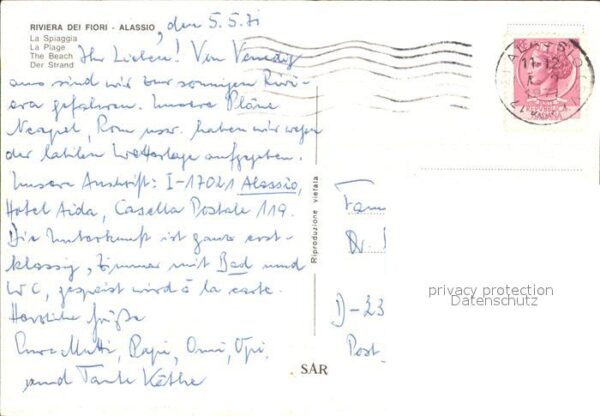 RIVIERA DEI FIORI - ALASSIO, den 5.5.71
La Spiaggia
La Plage
The Beach
Der Strand
Ihr Lieben! Von Venedig
aus sind wir zur sonnigen Rivi-
era gefahren. Unsere Pläne
Neapel, Rom usw. haben wir wegen
der labilen Wetterlage aufgegeben.
Unsere Anschrift: I-17021 Alassio,
Hotel Aida, Casella Postale 119.
Die Unterkunft ist ganz erst-
klassig, Zimmer mit Bad und
WC, gespeist wird à la carte.
Herzliche Grüße
Eure Mutti, Papi, Omi, Opi
und Tante Käthe
Riproduzione vietata
SAR
ALASSIO
11-12
Fam
Dr.
D-23
Post
privacy protection
Datenschutz